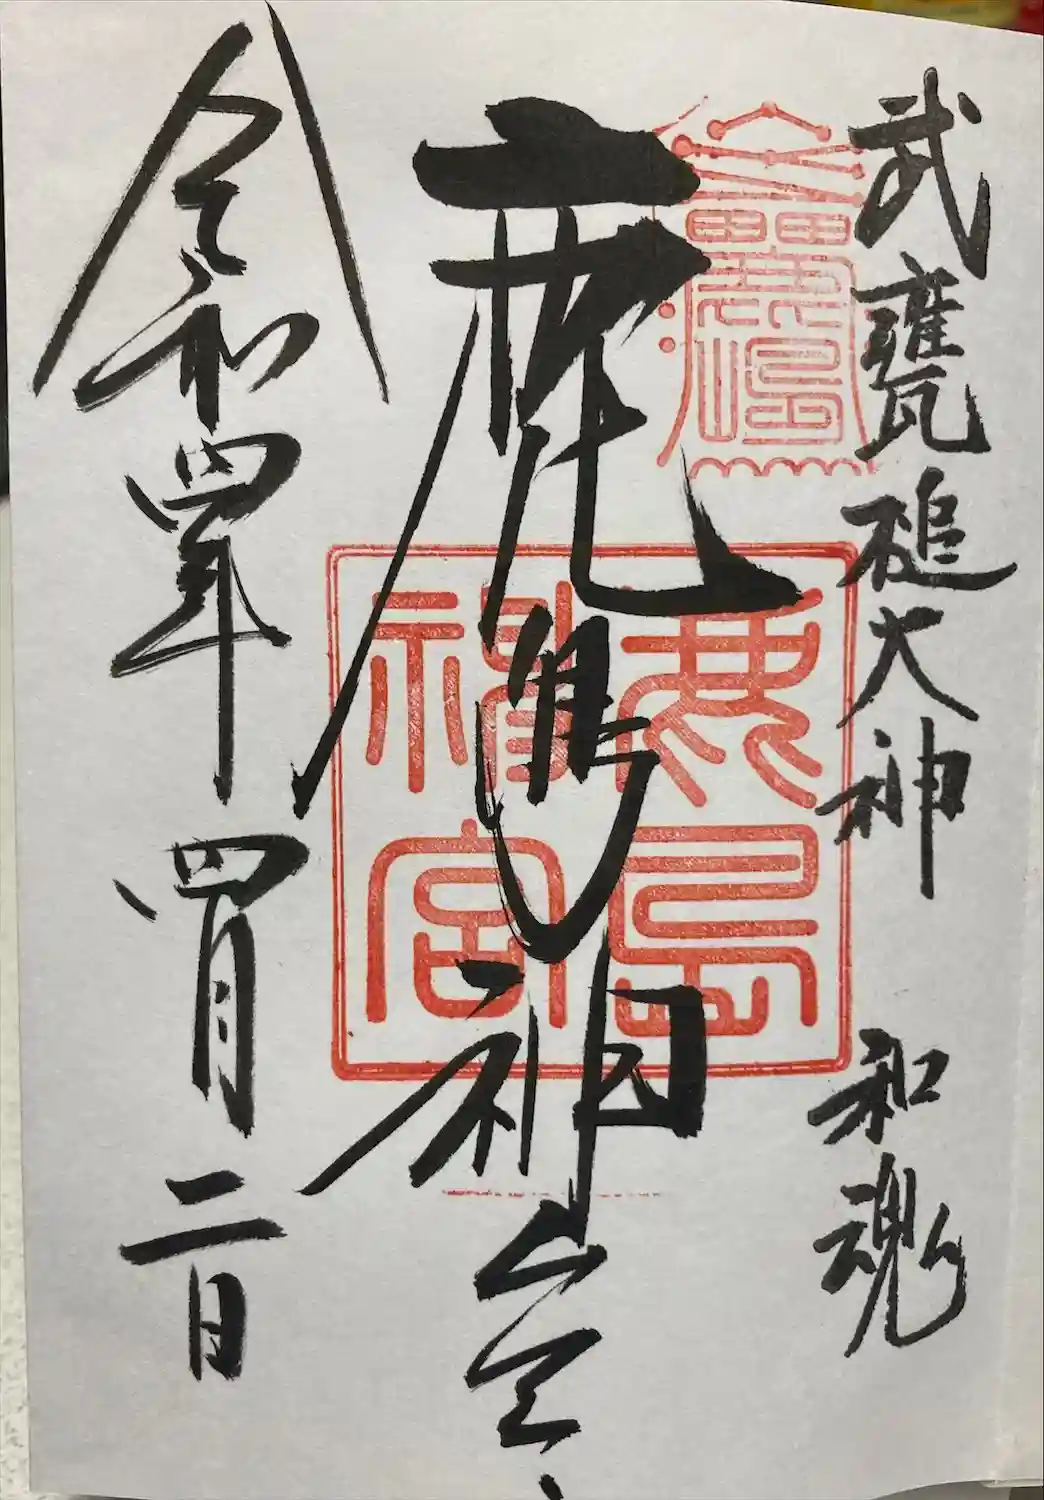 武甕槌大神 和魂
鹿島神宮
鹿島
神宮
令和四年四月二日